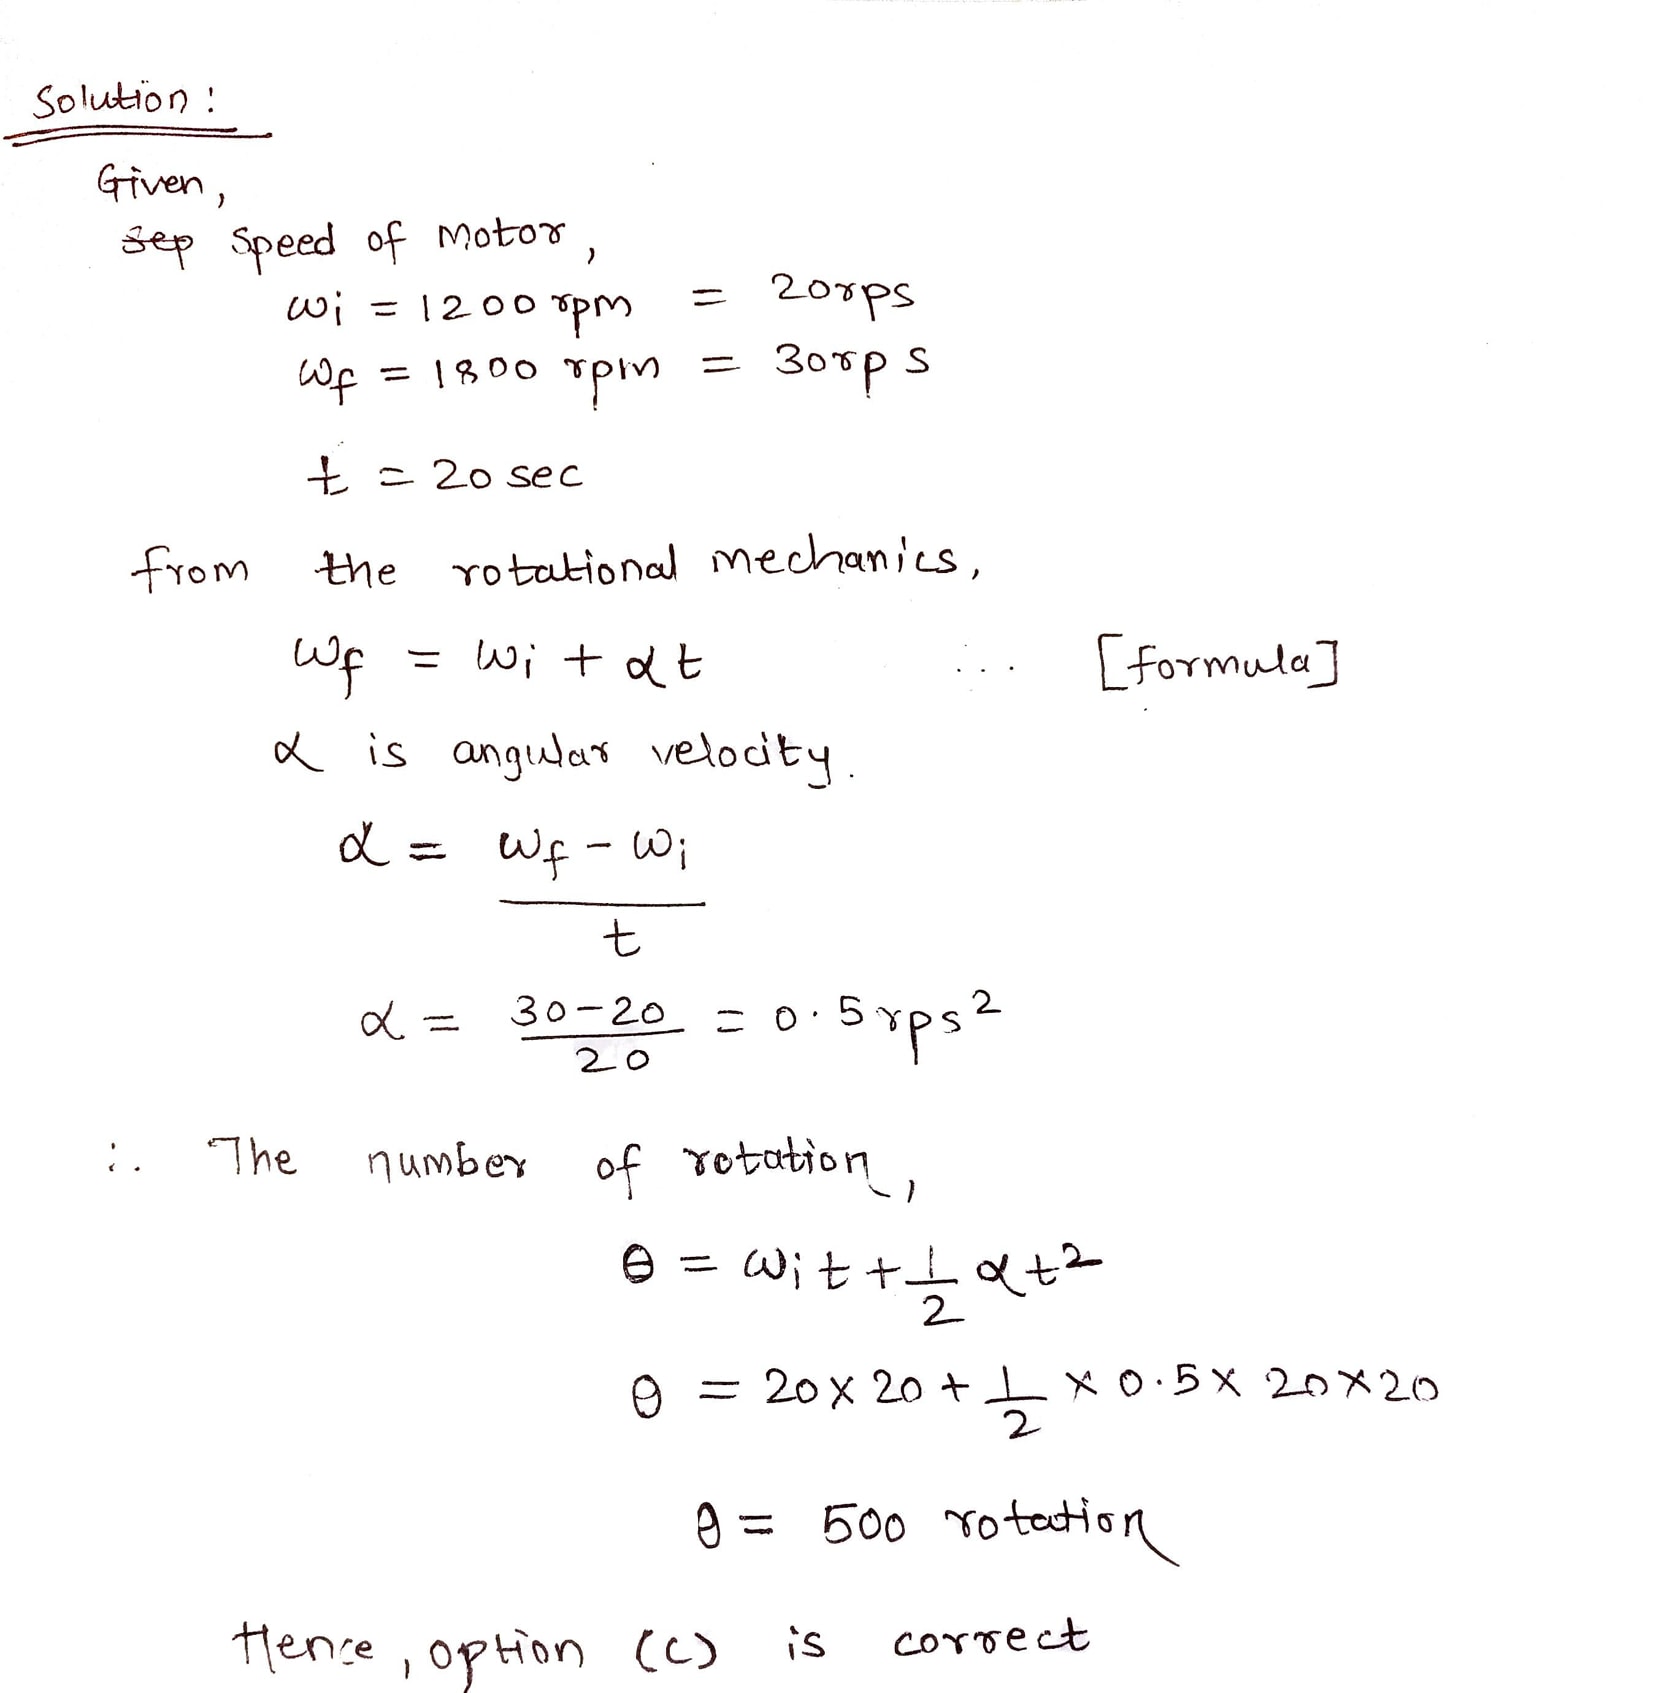 Solution :
Given,
sep speed of motor,
ωi = 1200 rpm = 20rps
ωf = 1800 rpm = 30rps
t = 20 sec
from the rotational mechanics,
ωf = ωi + αt ... [formula]
α is angular velocity.
α = ωf - ωi
t
α = 30-20 = 0.5 rps²
20
∴ The number of rotation,
θ = ωit + 1/2 αt²
θ = 20 x 20 + 1/2 x 0.5 x 20 x 20
θ = 500 rotation
Hence, option (c) is correct